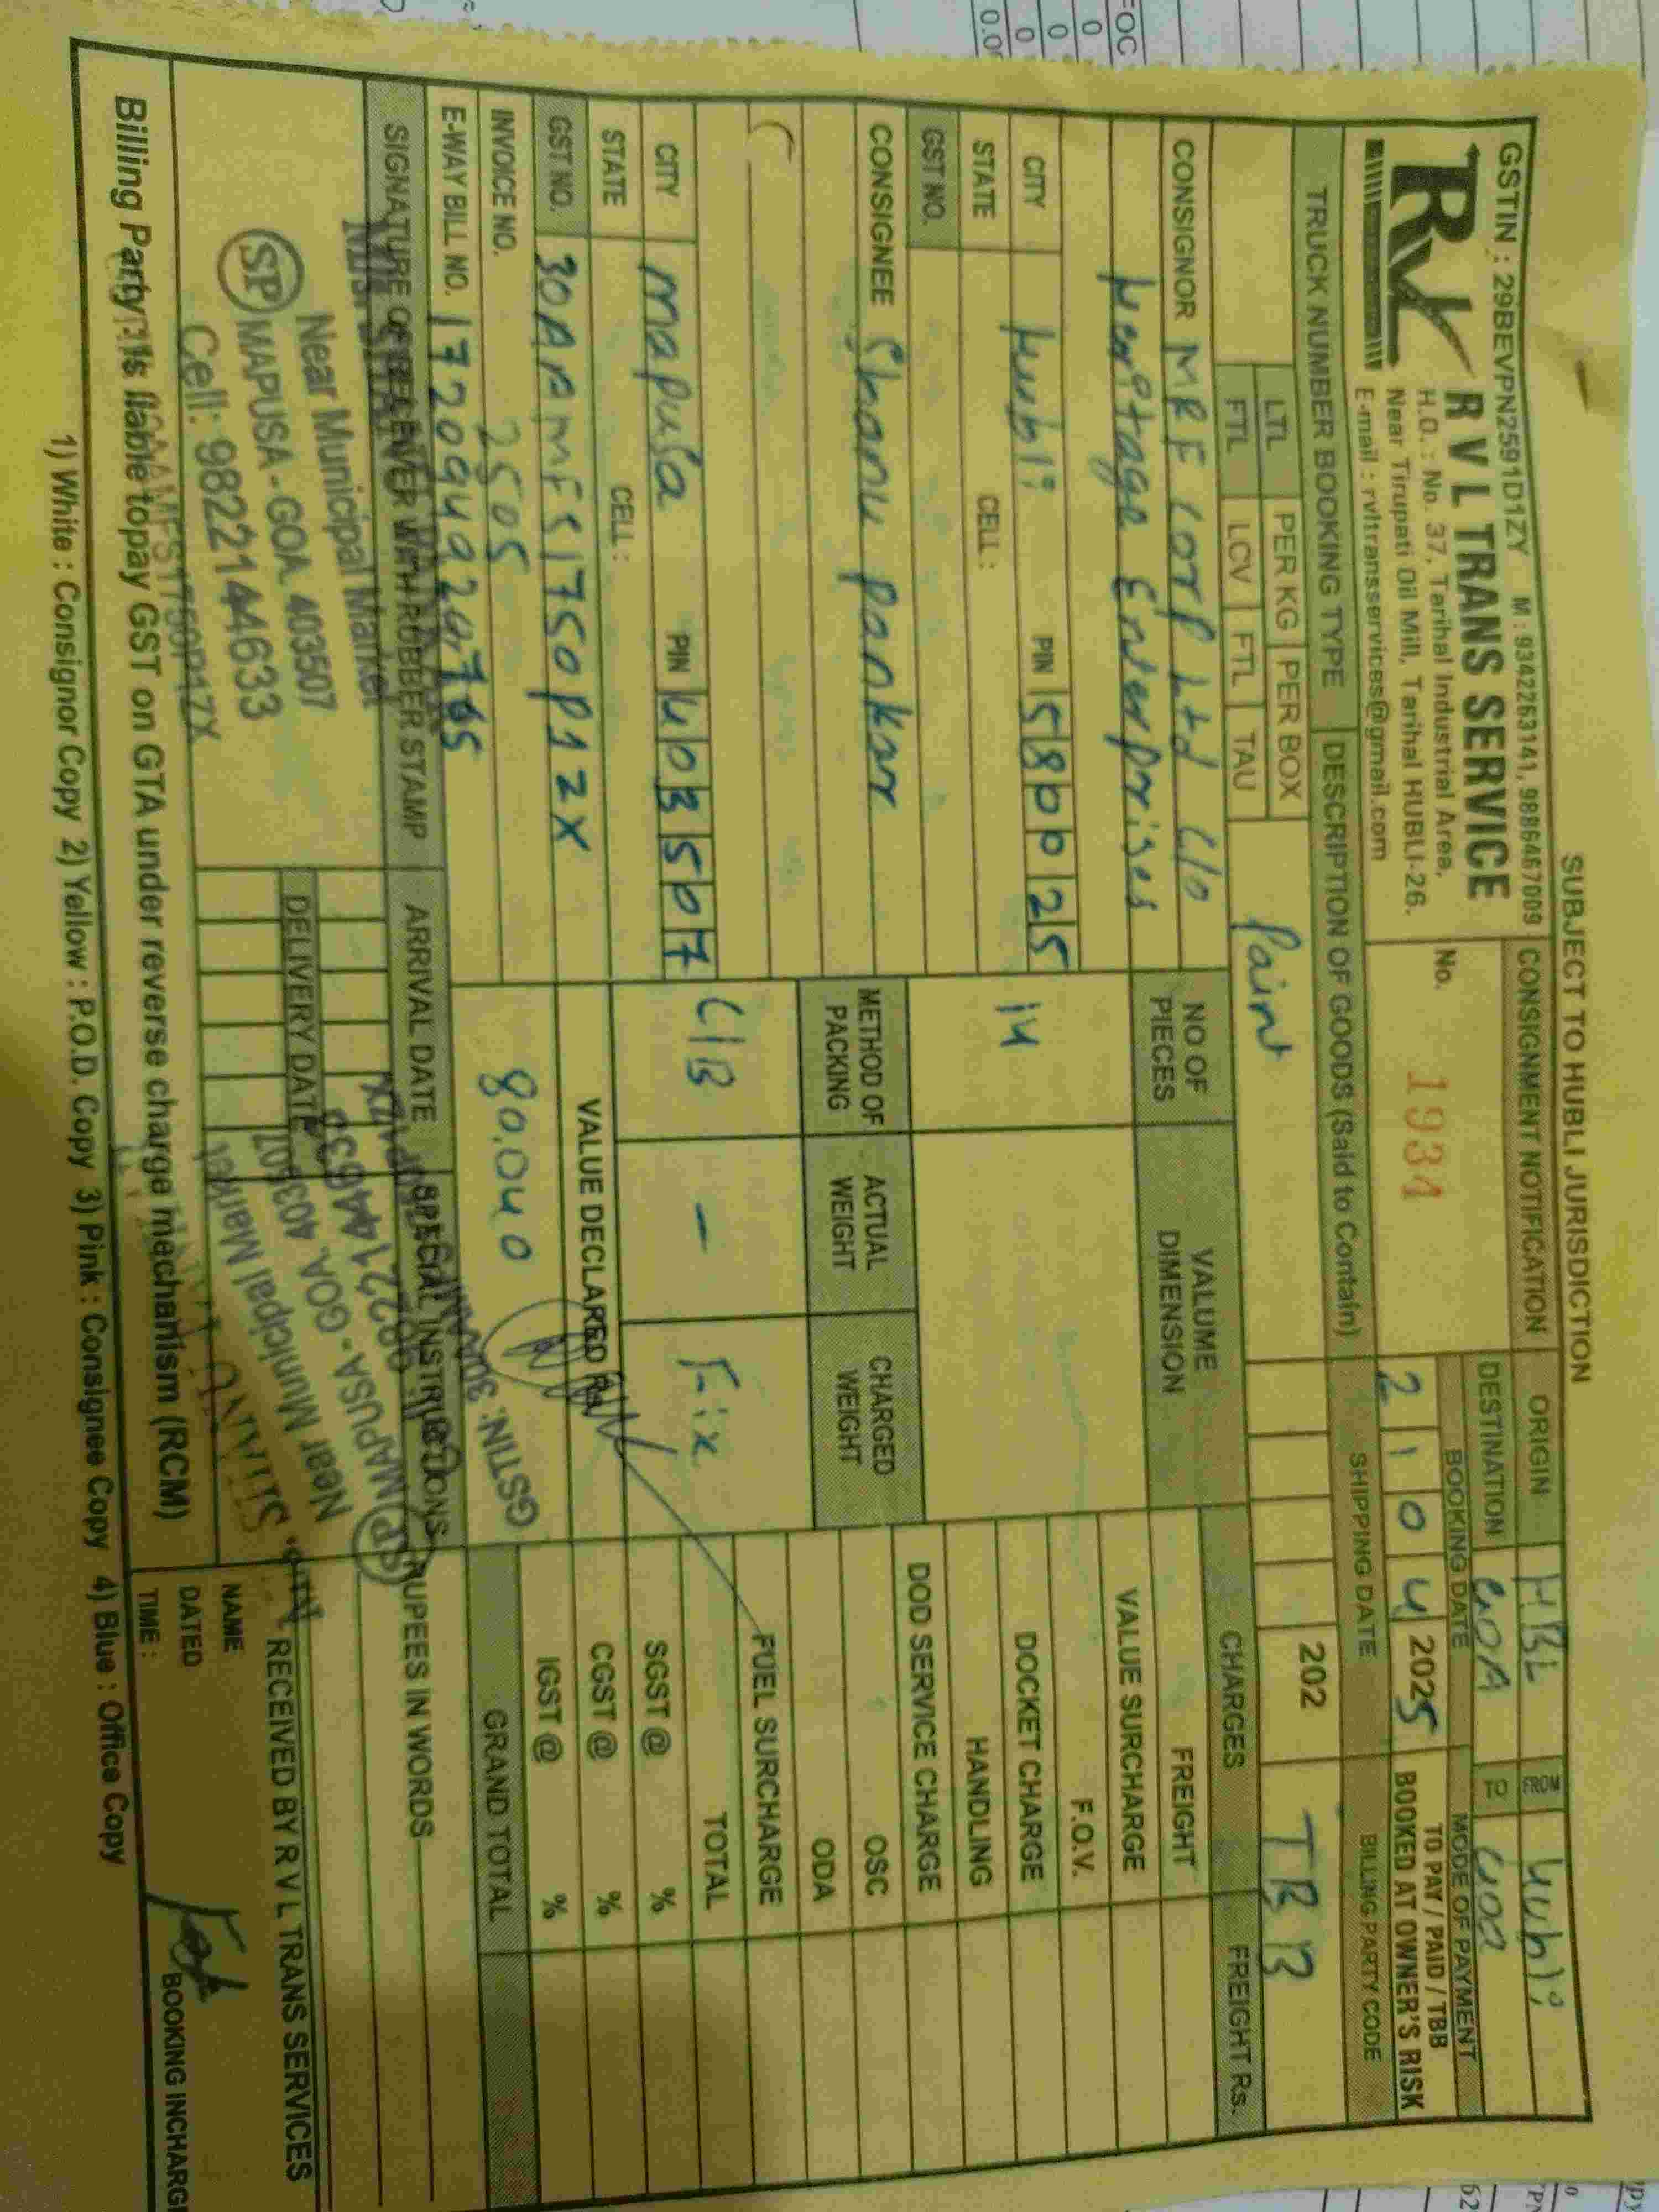 SUBJECT TO HUBLI JURISDICTION
GSTIN : 29BEVPN2591D1ZY M : 9342263141, 9886467009
RVL
R V L TRANS SERVICE
H.O. : No. 37, Tarihal Industrial Area,
Near Tirupati Oil Mill, Tarihal HUBLI-26.
E-mail : rvltransservices@gmail.com
CONSIGNMENT NOTIFICATION
No. 1934
ORIGIN HBL FROM Hubli
DESTINATION GOA TO Goa
BOOKING DATE MODE OF PAYMENT
21 04 2025 TO PAY / PAID / TBB
BOOKED AT OWNER'S RISK
SHIPPING DATE BILLING PARTY CODE
202 TBB
TRUCK NUMBER BOOKING TYPE DESCRIPTION OF GOODS (Said to Contain)
LTL PER KG PER BOX Paint
FTL LCV FTL TAU
CONSIGNOR MRF Corp Ltd C/o
Heritage Enterprises
CITY Hubli PIN 580025
STATE CELL :
GST NO.
CONSIGNEE Shanu Pankar
CITY mapusa PIN 403507
STATE CELL :
GST NO. 30AAMFS1750P1ZX
INVOICE NO. 2505
E-WAY BILL NO.
NO OF PIECES VALUME DIMENSION
14
METHOD OF PACKING ACTUAL WEIGHT CHARGED WEIGHT
C/B - Fix
VALUE DECLARED
80,040
CHARGES FREIGHT Rs.
FREIGHT
VALUE SURCHARGE
F.O.V.
DOCKET CHARGE
HANDLING
DOD SERVICE CHARGE
OSC
ODA
FUEL SURCHARGE
TOTAL
SGST @ %
CGST @ %
IGST @ %
GRAND TOTAL
SIGNATURE OF RECEIVER WITH RUBBER STAMP ARRIVAL DATE SPECIAL INSTRUCTIONS RUPEES IN WORDS
DELIVERY DATE
Near Municipal Market
SP MAPUSA - GOA. 403507
Cell: 9822144633
30AAMFS1750P1ZX
GSTIN: 30AAM
9822144633
SP MAPUSA - GOA. 403507
Near Municipal Market
RECEIVED BY R V L TRANS SERVICES
NAME
DATED
TIME :
BOOKING INCHARGE
Billing Party : Is liable topay GST on GTA under reverse charge mechanism (RCM)
1) White : Consignor Copy 2) Yellow : P.O.D. Copy 3) Pink : Consignee Copy 4) Blue : Office Copy
FOC
0
0
0